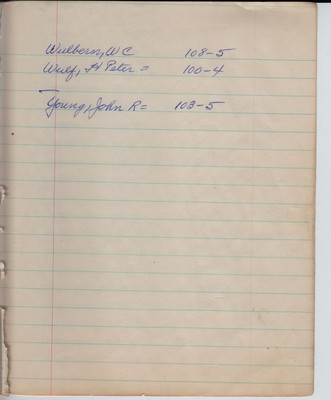 Wulbern, W C 108-5
Wulf, H Peter = 100-4
Young, John R = 103-5